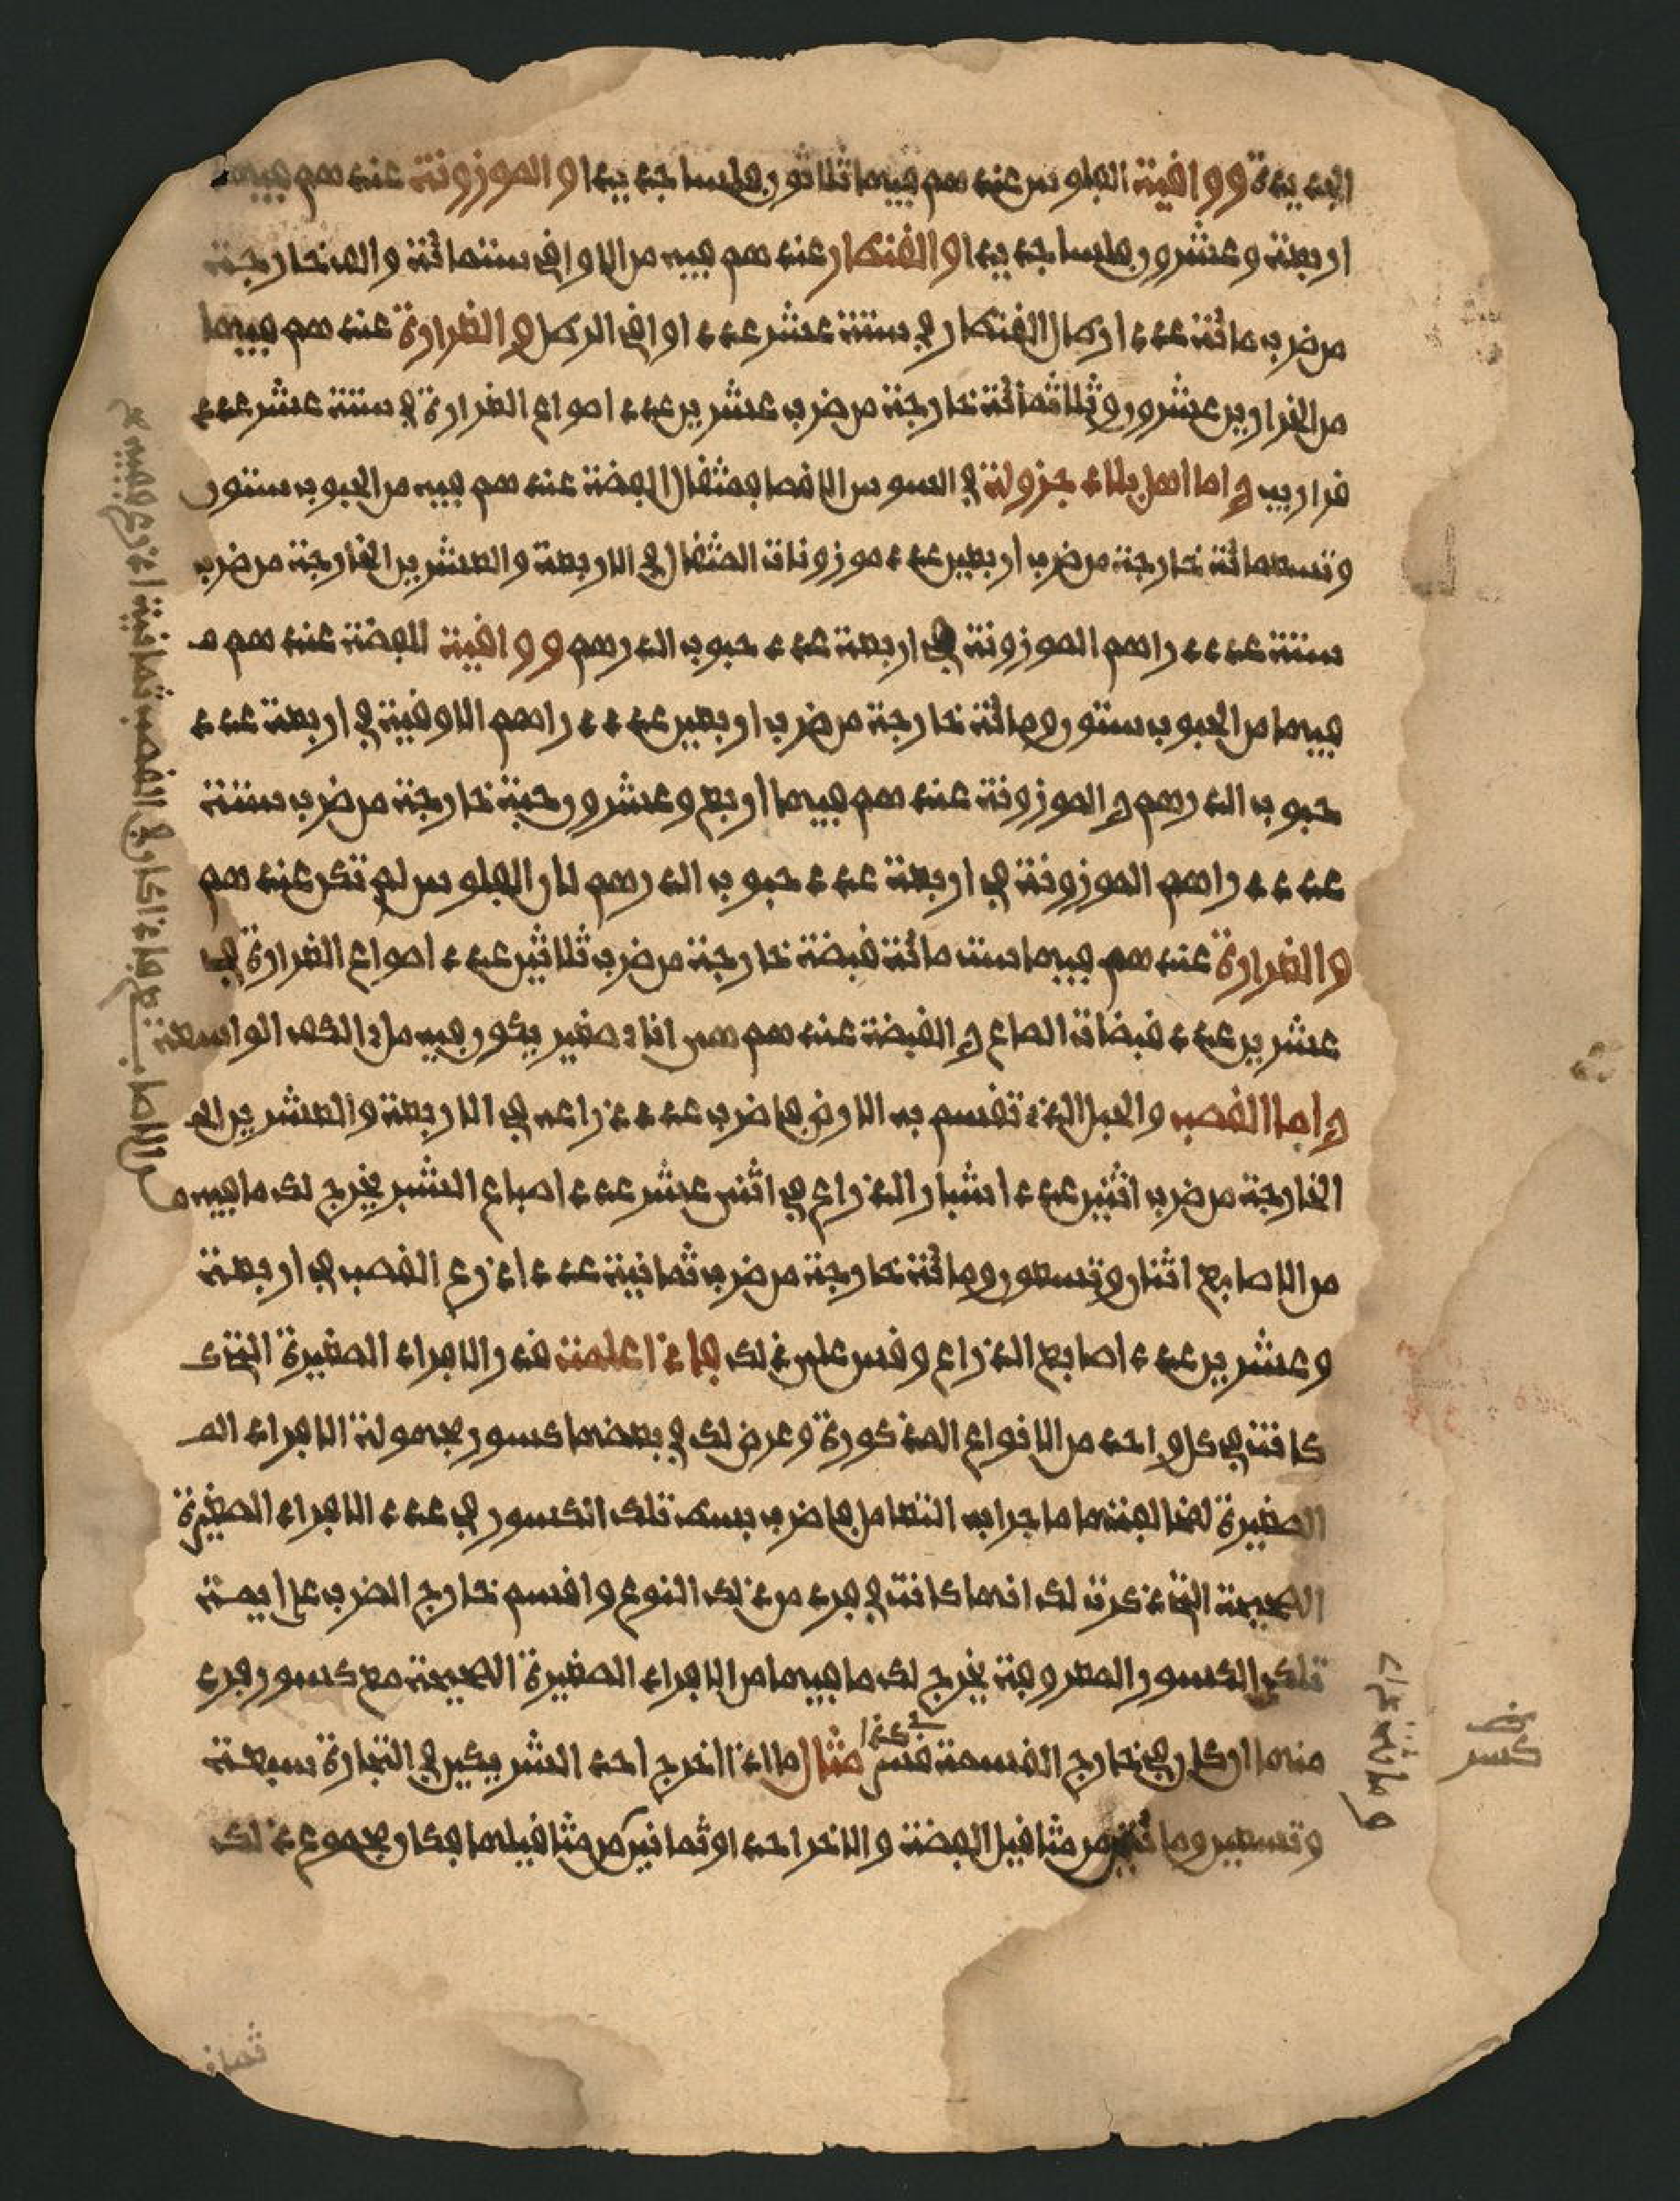 الجديدة ووافية الفلوس عندهم فيها ثلاثون فلسا جديدا والموزونة عندهم فيها
اربعة وعشرون فلسا جديدا والقنطار عندهم فيه من الاواق ستمائة والف خارجة
من ضرب مائة عدد ارطال القنطار في ستة عشر عدد اواق الرطل والغرارة عندهم فيها
من القراريب عشرون وثلاثمائة خارجة من ضرب عشرين عدد اصواع الغرارة في ستة عشر عدد
قراريب واما اهل بلاد جزولة في السوس الاقصا فمثقال الفضة عندهم فيه من الحبوب ستون
وتسعمائة خارجة من ضرب اربعين عدد موزونات المثقال في الاربعة والعشرين الخارجة من ضرب
ستة عدد دراهم الموزونة في اربعة عدد حبوب الدرهم ووافية الفضة عندهم
فيها من الحبوب ستون ومائة خارجة من ضرب اربعين عدد دراهم الاوفية في اربعة عدد
حبوب الدرهم والموزونة عندهم فيها اربع وعشرون حبة خارجة من ضرب ستة
عدد دراهم الموزونة في اربعة عدد حبوب الدرهم لان الفلوس لم تكن عندهم
والغرارة عندهم فيها ست مائة قبضة خارجة من ضرب ثلاثين عدد اصواع الغرارة في
عشرين عدد قبضات الصاع والقبضة عندهم هي اناء صغير يكون فيه ملء الكف الواسعة
واما القصب والحبل الذي تقسم به الارض فاضرب عدد ذراعه في الاربعة والعشرين
الخارجة من ضرب اثنين عدد اشبار الذراع في اثنى عشر عدد اصباع الشبر يخرج لك ما فيه
من الاصابع اثنان وتسعون ومائة خارجة من ضرب ثمانية عدد اذرع القصب في اربعة
وعشرين عدد اصابع الذراع وقس على ذلك فاذا علمت قدر الافراد الصغيرة التي
كانت في كل واحد من الانواع المذكورة وعرض لك في بعضها كسور مجهولة الافراد
الصغيرة لمخالفتها ما جرا به التعامل فاضرب بسط تلك الكسور في عدد الافراد الصغيرة
الصحيحة التي ذكرت لك انها كانت في فرد من ذلك النوع واقسم خارج الضرب على ايمة
تلك الكسور المعروفة يخرج لك ما فيها من الافراد الصغيرة الصحيحة مع كسور فرد
منها ان كان في خارج القسمة كسر مثال ما اذا اخرج احد الشريكين في التجارة سبعة
وتسعين ومائتين من مثاقيل الفضة والاخر احدا وثمانين من مثاقيلها فكان مجموع ذلك
كسر